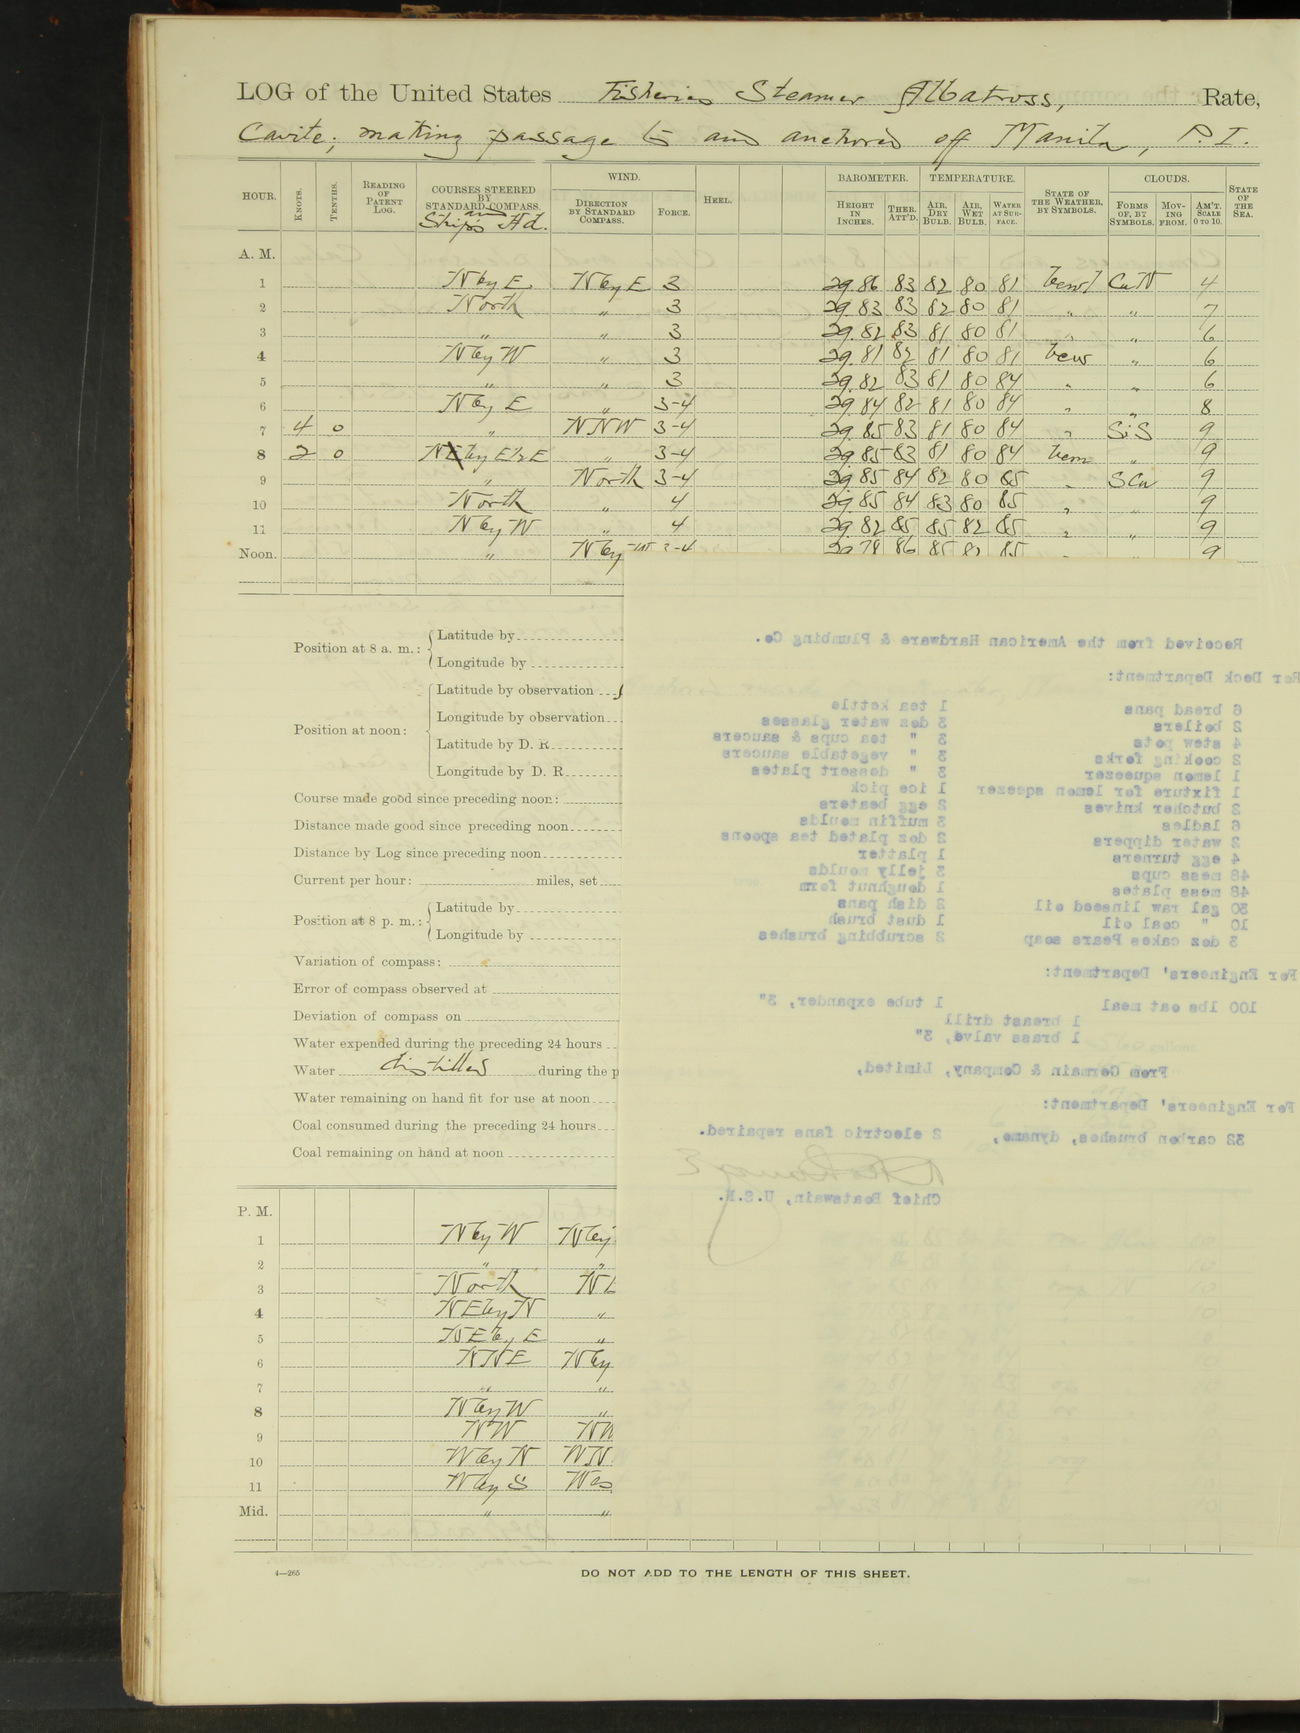 LOG of the United States Fisheries Steamer Albatross, Rate,
Cavite; making passage to and anchored off Manila, P. I.
HOUR. KNOTS. TENTHS. READING OF PATENT LOG. COURSES STEERED BY STANDARD COMPASS. and Ship's Hd. WIND. DIRECTION BY STANDARD COMPASS. FORCE. HEEL. BAROMETER. HEIGHT IN INCHES. THER. ATT'D. TEMPERATURE. AIR, DRY BULB. AIR, WET BULB. WATER AT SURFACE. STATE OF THE WEATHER, BY SYMBOLS. CLOUDS. FORMS OF, BY SYMBOLS. MOVING FROM. AM'T. SCALE 0 TO 10. STATE OF THE SEA.
A. M.
1 N by E N by E 3 29.86 83 82 80 81 CuN 4
2 North " 3 29.83 83 82 80 81 " " 7
3 " " 3 29.82 83 81 80 81 " " 6
4 N by W " 3 29.81 82 81 80 81 bcw " 6
5 " " 3 29.82 83 81 80 84 " " 6
6 N by E " 3-4 29.84 82 81 80 84 " " 8
7 4 0 " NNW 3-4 29.85 83 81 80 84 " SiS 9
8 2 0 N by E½E " 3-4 29.85 83 81 80 84 bcm " 9
9 " North 3-4 29.85 84 82 80 85 " SCu 9
10 North " 4 29.85 84 83 80 85 " " 9
11 N by W " 4 29.82 85 85 82 85 " " 9
Noon. " N by W 3-4 29 78 86 85 82 85 " 9
Position at 8 a. m.: Latitude by
Longitude by
Position at noon: Latitude by observation
Longitude by observation
Latitude by D. R.
Longitude by D. R.
Course made good since preceding noon:
Distance made good since preceding noon
Distance by Log since preceding noon
Current per hour: miles, set
Position at 8 p. m.: Latitude by
Longitude by
Variation of compass:
Error of compass observed at
Deviation of compass on
Water expended during the preceding 24 hours
Water distilled during the p
Water remaining on hand fit for use at noon
Coal consumed during the preceding 24 hours
Coal remaining on hand at noon
Received from the American Hardware & Plumbing Co.
For Deck Department:
6 bread pans 1 tea kettle
2 boilers 3 doz water glasses
4 stew pots 3 " tea cups & saucers
2 cooking forks 3 " vegetable saucers
1 lemon squeezer 3 " dessert plates
1 fixture for lemon sqeezer 1 ice pick
2 butcher knives 2 egg beaters
6 ladles 3 muffin moulds
2 water dippers 2 doz plated tea spoons
4 egg turners 1 platter
48 mess cups 3 jelly moulds
48 mess plates 1 doughnut form
50 gal raw linseed oil 2 dish pans
10 " coal oil 1 dust brush
3 doz cakes Pears soap 2 scrubbing brushes
For Engineers' Department:
100 lbs oat meal 1 tube expander, 3"
1 breast drill
1 brass valve, 3"
From Germain & Company, Limited,
For Engineers' Department:
32 carbon brushes, dynamo, 2 electric fans repaired.
Chief Boatswain, U.S.N.
P. M.
1 N by W N by
2 " "
3 North
4 NE by N "
5 NE by E "
6 NNE N by
7 " "
8 N by W "
9 NW NW
10 W by N WN
11 W by S Wes
Mid. " "
4—265
DO NOT ADD TO THE LENGTH OF THIS SHEET.